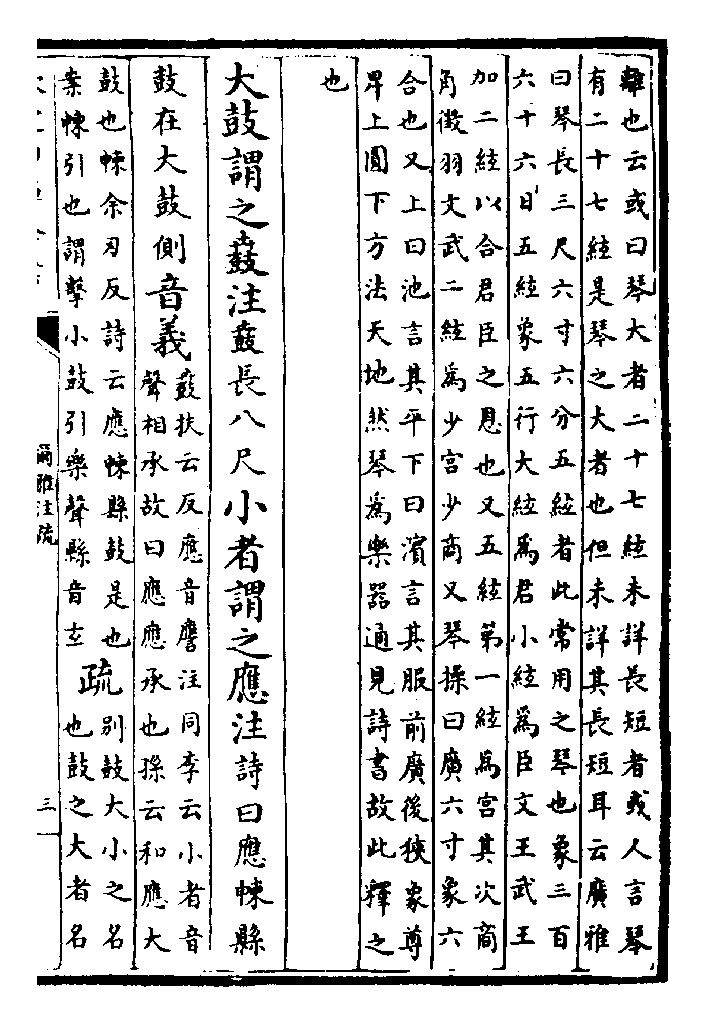 離也云或曰琴大者二十七絃未詳長短者或人言琴
有二十七絃是琴之大者也但未詳其長短耳云廣雅
曰琴長三尺六寸六分五絃者此常用之琴也象三百
六十六日五絃象五行大絃為君小絃為臣文王武王
加二絃以合君臣之恩也又五絃第一絃為宮其次商
角徵羽文武二絃為少宮少商又琴操曰廣六寸象六
合也又上曰池言其平下曰濱言其服前廣後狹象尊
卑上圓下方法天地然琴為樂器通見詩書故此釋之
也
大鼓謂之鼖注鼖長八尺小者謂之應注詩曰應朄縣
鼓在大鼓側音義鼖扶云反應音譍注同李云小者音
聲相承故曰應應承也孫云和應大
鼓也朄余刃反詩云應朄縣鼓是也
案朄引也謂擊小鼓引樂聲縣音玄
疏别鼓大小之名
也鼓之大者名
爾雅注疏
三